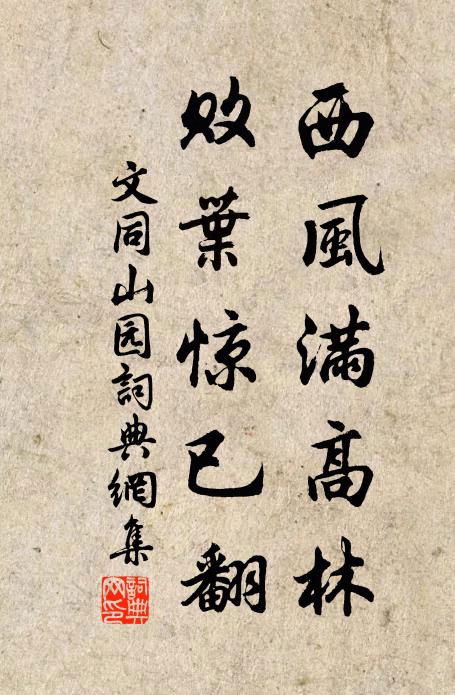 西風滿高林
敗葉惊已翻
文同山园詞典網集
詞典网印